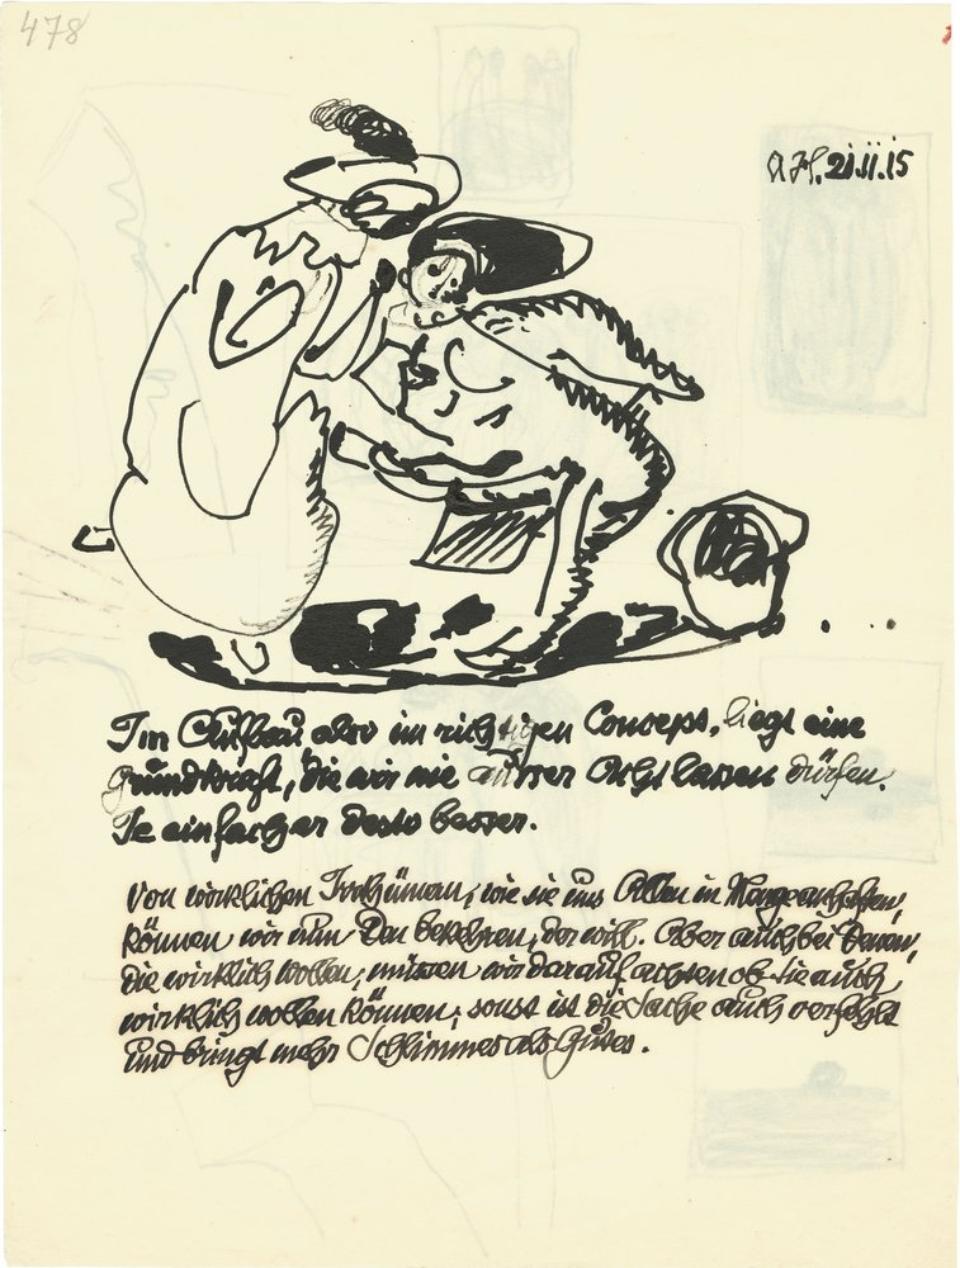 478
AH. 21.II.15
Im Aufbau also im richtigen Concept, liegt eine
Grundkraft, die wir nie ausser Acht lassen dürfen.
Je einfacher desto besser.
Von wirklichen Irrthümern, wie sie uns Allen im Magen
können wir nun Den bekehren, der will. Aber auch bei Denen,
die wirklich wollen, müssen wir darauf achten ob sie auch
wirklich wollen können; sonst ist die Sache auch verfehlt
und bringt mehr Schlimmes als Gutes.